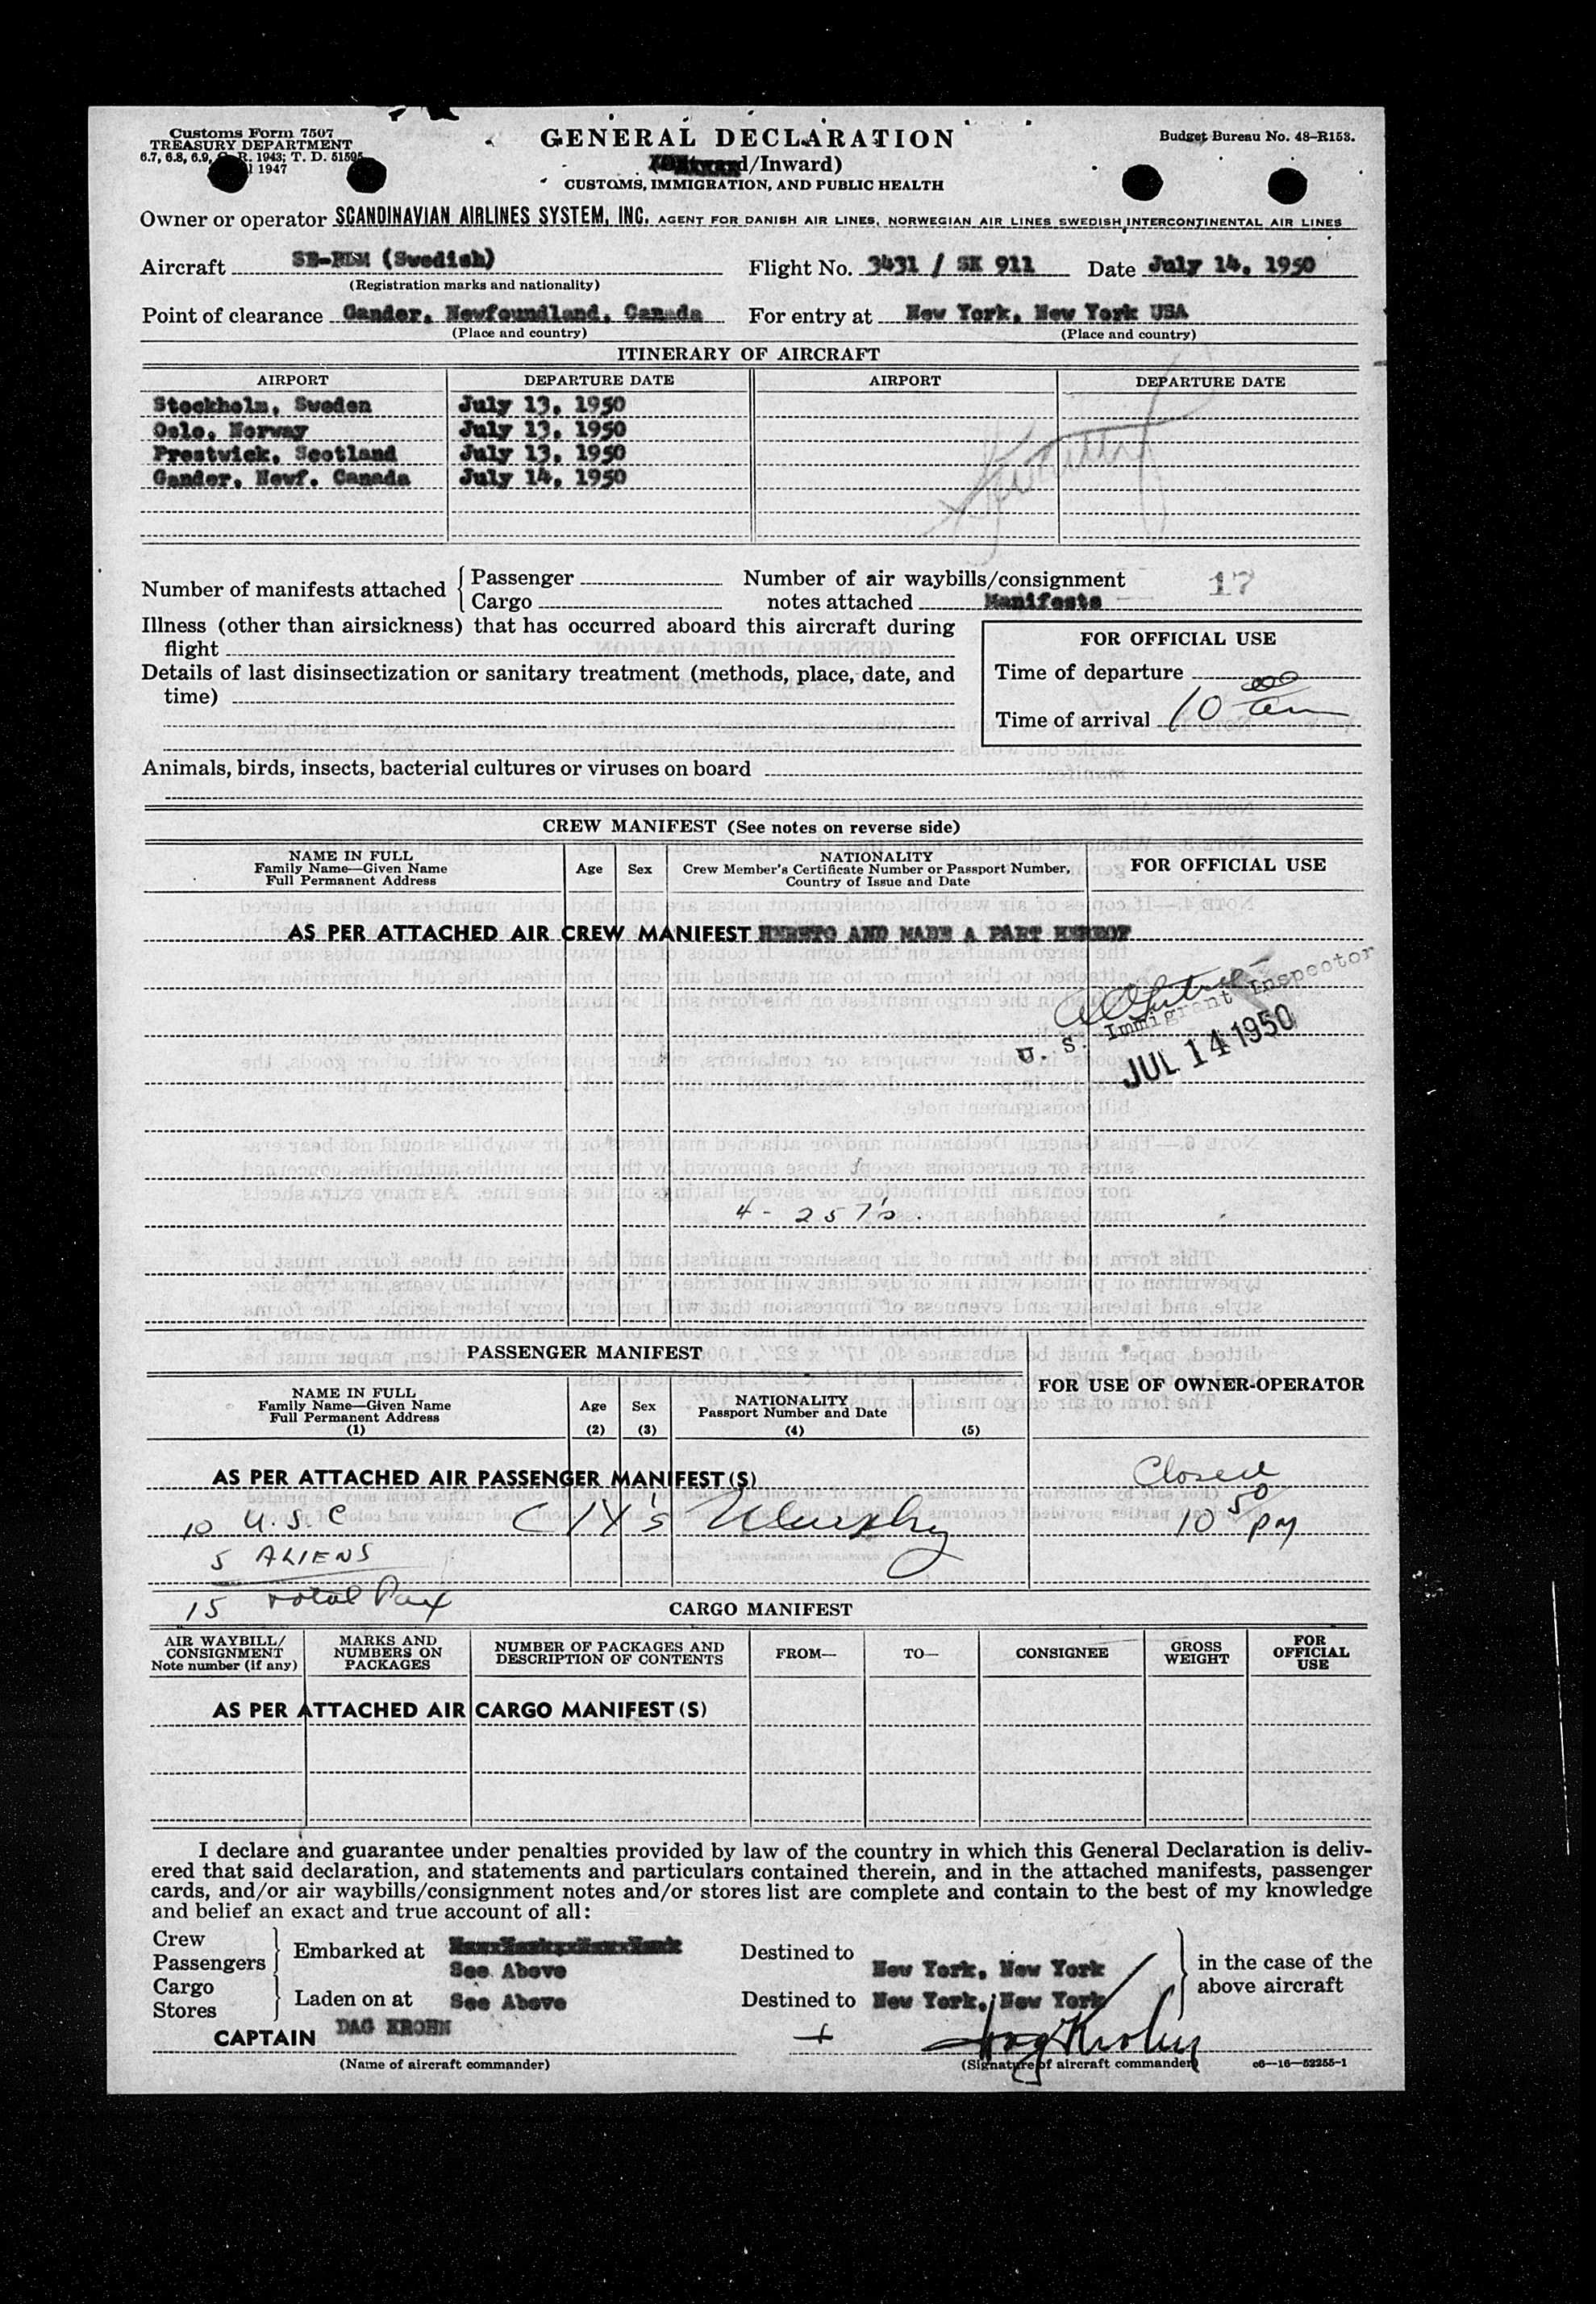 Customs Form 7507
TREASURY DEPARTMENT
6.7, 6.8, 6.9, R. 1943; T. D. 51595
1947
GENERAL DECLARATION
d/Inward)
CUSTOMS, IMMIGRATION, AND PUBLIC HEALTH
Budget Bureau No. 48-R153.
Owner or operator SCANDINAVIAN AIRLINES SYSTEM, INC. AGENT FOR DANISH AIR LINES, NORWEGIAN AIR LINES SWEDISH INTERCONTINENTAL AIR LINES
Aircraft (Swedish) Flight No. 3431 / SK 911 Date July 14, 1950
(Registration marks and nationality)
Point of clearance Gander, Newfoundland, Canada For entry at New York, New York USA
(Place and country) (Place and country)
ITINERARY OF AIRCRAFT
AIRPORT DEPARTURE DATE AIRPORT DEPARTURE DATE
Stockholm, Sweden July 13, 1950
Oslo, Norway July 13, 1950
Prestwick, Scotland July 13, 1950
Gander, Newf. Canada July 14, 1950
Number of manifests attached { Passenger
Cargo
Number of air waybills/consignment 17
notes attached Manifests
Illness (other than airsickness) that has occurred aboard this aircraft during
flight
Details of last disinsectization or sanitary treatment (methods, place, date, and
time)
FOR OFFICIAL USE
Time of departure
Time of arrival 10
Animals, birds, insects, bacterial cultures or viruses on board
CREW MANIFEST (See notes on reverse side)
NAME IN FULL
Family Name—Given Name
Full Permanent Address
Age Sex
NATIONALITY
Crew Member's Certificate Number or Passport Number,
Country of Issue and Date
FOR OFFICIAL USE
AS PER ATTACHED AIR CREW MANIFEST HERETO AND MADE A PART HEREOF
U. S. Immigrant Inspector
JUL 14 1950
4 - 257's.
PASSENGER MANIFEST
FOR USE OF OWNER-OPERATOR
NAME IN FULL
Family Name—Given Name
Full Permanent Address
(1)
Age
(2)
Sex
(3)
NATIONALITY
Passport Number and Date
(4) (5)
AS PER ATTACHED AIR PASSENGER MANIFEST(S)
Closed
10 50 PM
10 U.S.C Murphy
5 ALIENS
15 Total Pax
CARGO MANIFEST
AIR WAYBILL/
CONSIGNMENT
Note number (if any)
MARKS AND
NUMBERS ON
PACKAGES
NUMBER OF PACKAGES AND
DESCRIPTION OF CONTENTS
FROM— TO— CONSIGNEE
GROSS
WEIGHT
FOR
OFFICIAL
USE
AS PER ATTACHED AIR CARGO MANIFEST(S)
I declare and guarantee under penalties provided by law of the country in which this General Declaration is deliv-
ered that said declaration, and statements and particulars contained therein, and in the attached manifests, passenger
cards, and/or air waybills/consignment notes and/or stores list are complete and contain to the best of my knowledge
and belief an exact and true account of all:
Crew
Passengers
Cargo
Stores
Embarked at
See Above
Laden on at See Above
Destined to
New York, New York
Destined to New York, New York
in the case of the
above aircraft
CAPTAIN DAG KROHN
Dag Krohn
(Name of aircraft commander) (Signature of aircraft commander) c6—16—52255-1